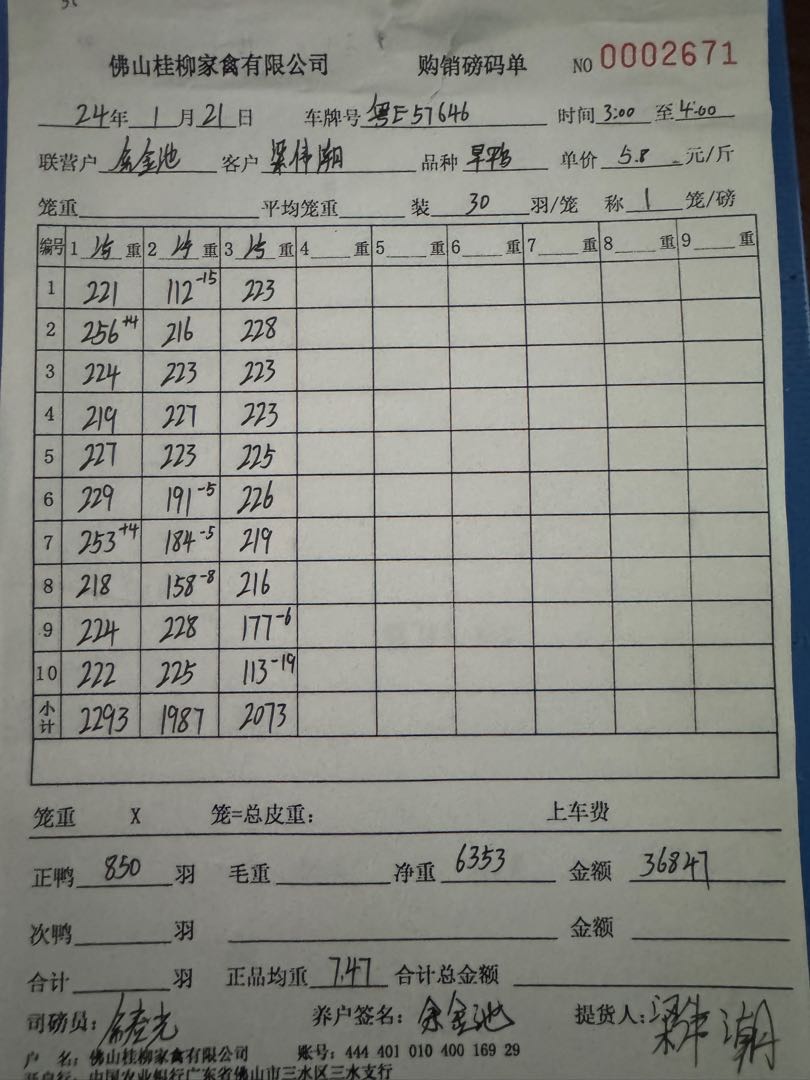 佛山桂柳家禽有限公司 购销磅码单 NO 0002671
24年 1月21日 车牌号 粤E57646 时间 3:00 至 4:00
联营户 余金池 客户 梁伟潮 品种 旱鸭 单价 5.8 元/斤
笼重 平均笼重 装 30 羽/笼 称 1 笼/磅
编号 1 重 2 重 3 重 4 重 5 重 6 重 7 重 8 重 9 重
1 221 112-15 223
2 256+4 216 228
3 224 223 223
4 219 227 223
5 227 223 225
6 229 191-5 226
7 253+4 184-5 219
8 218 158-8 216
9 224 228 177-6
10 222 225 113-19
小计 2293 1987 2073
笼重 X 笼=总皮重: 上车费
正鸭 850 羽 毛重 净重 6353 金额 36847
次鸭 羽 金额
合计 羽 正品均重 7.47 合计总金额
司磅员: 养户签名: 余金池 提货人: 梁伟潮
户 名: 佛山桂柳家禽有限公司 账号: 444 401 010 400 169 29
开户行: 中国农业银行广东省佛山市三水区三水支行